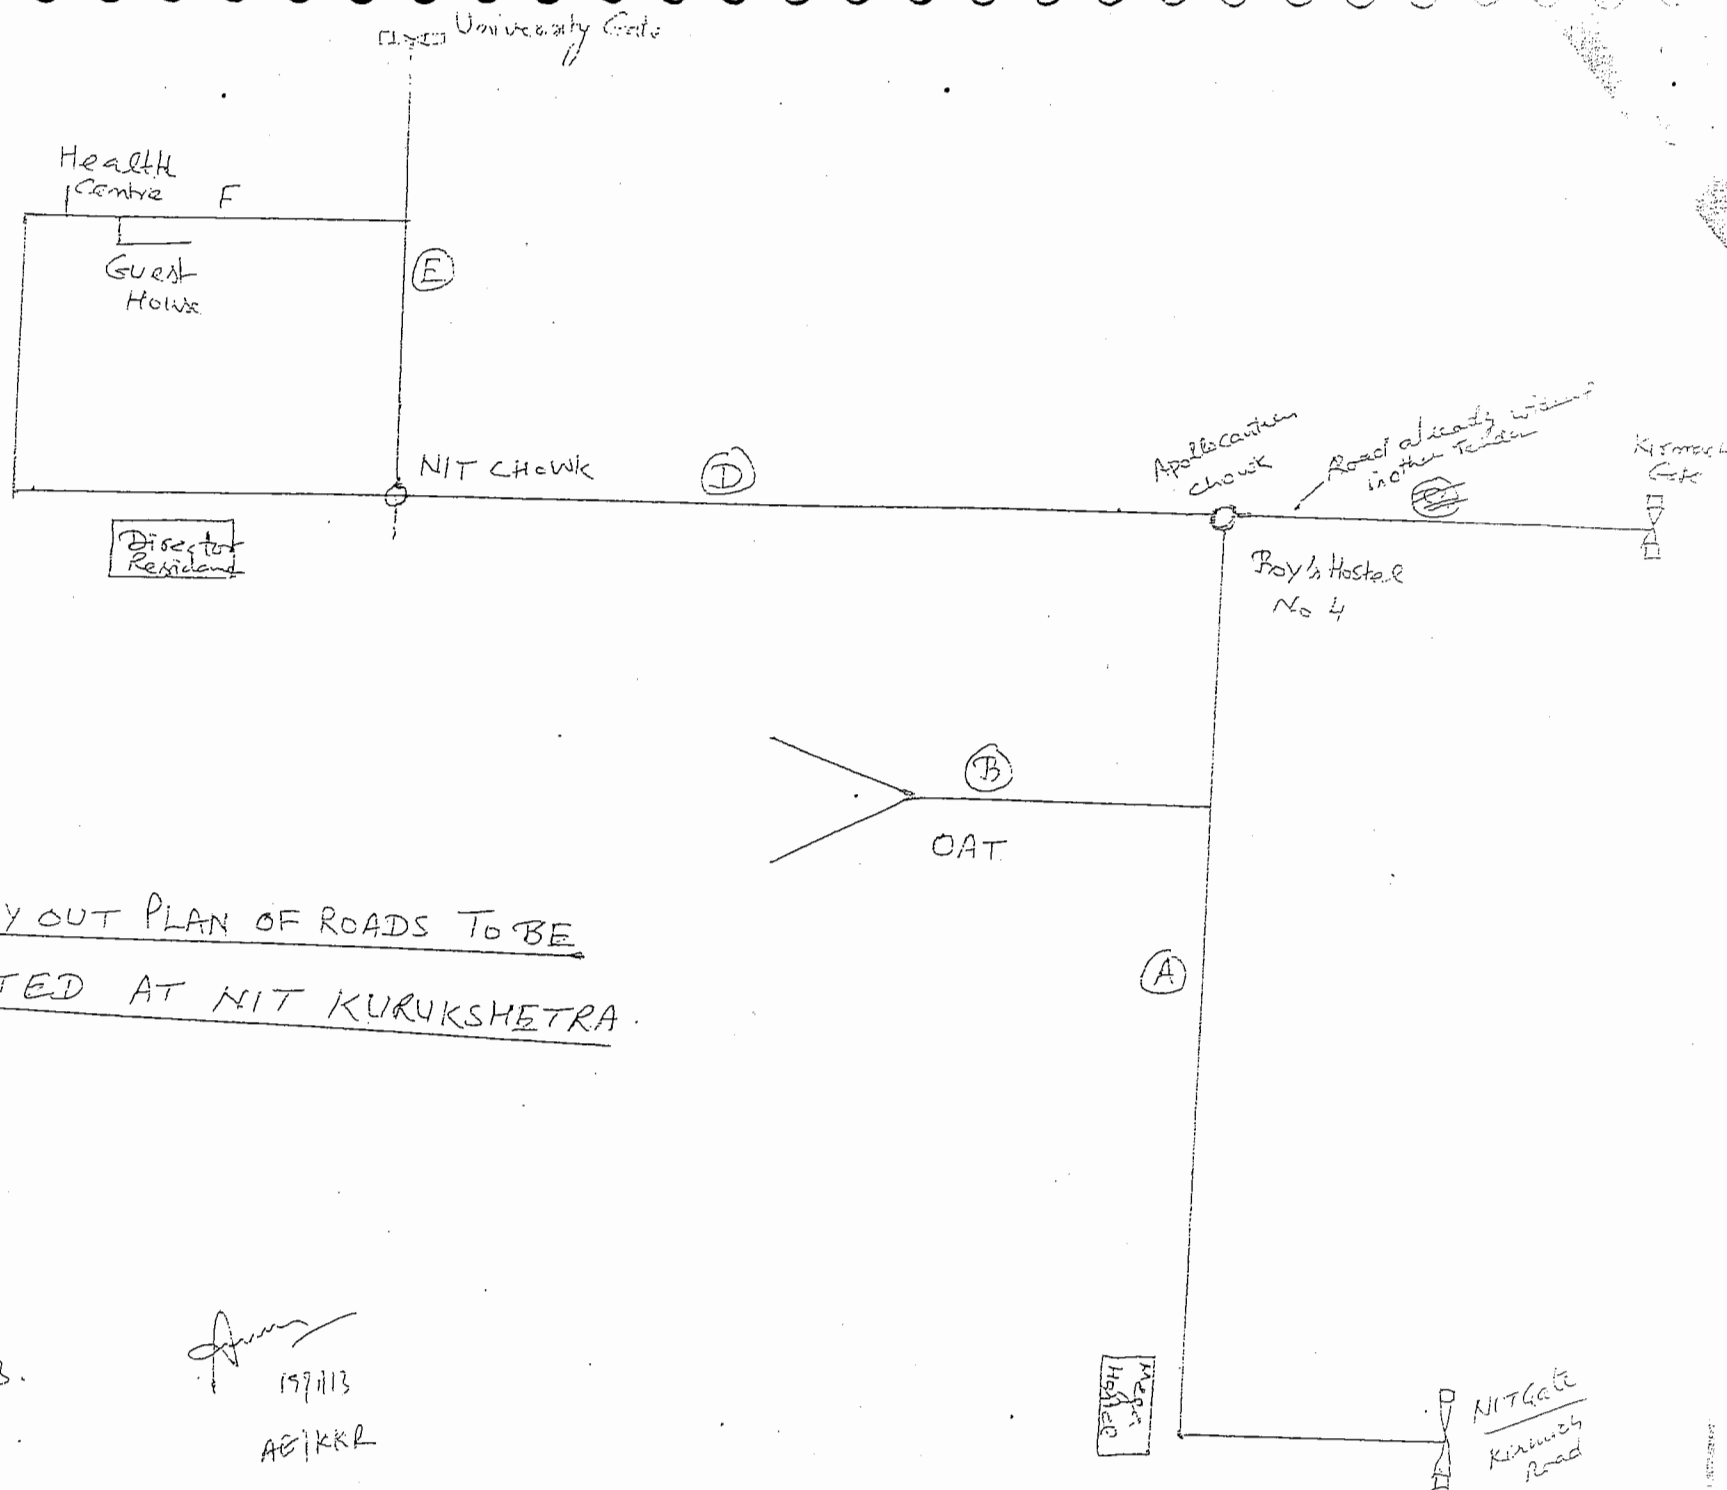 University Gate
Health
Centre
F
E
Guest
House
NIT CHOWK
D
Apollo Canteen
Chowk
Road already
in other Tender
Gate
Director
Boy's Hostel
No 4
B
OAT
Y OUT PLAN OF ROADS TO BE
TED AT NIT KURUKSHETRA.
A
Mega
Hostel
NIT Gate
Kirmich
Road
3.
AE/KKR